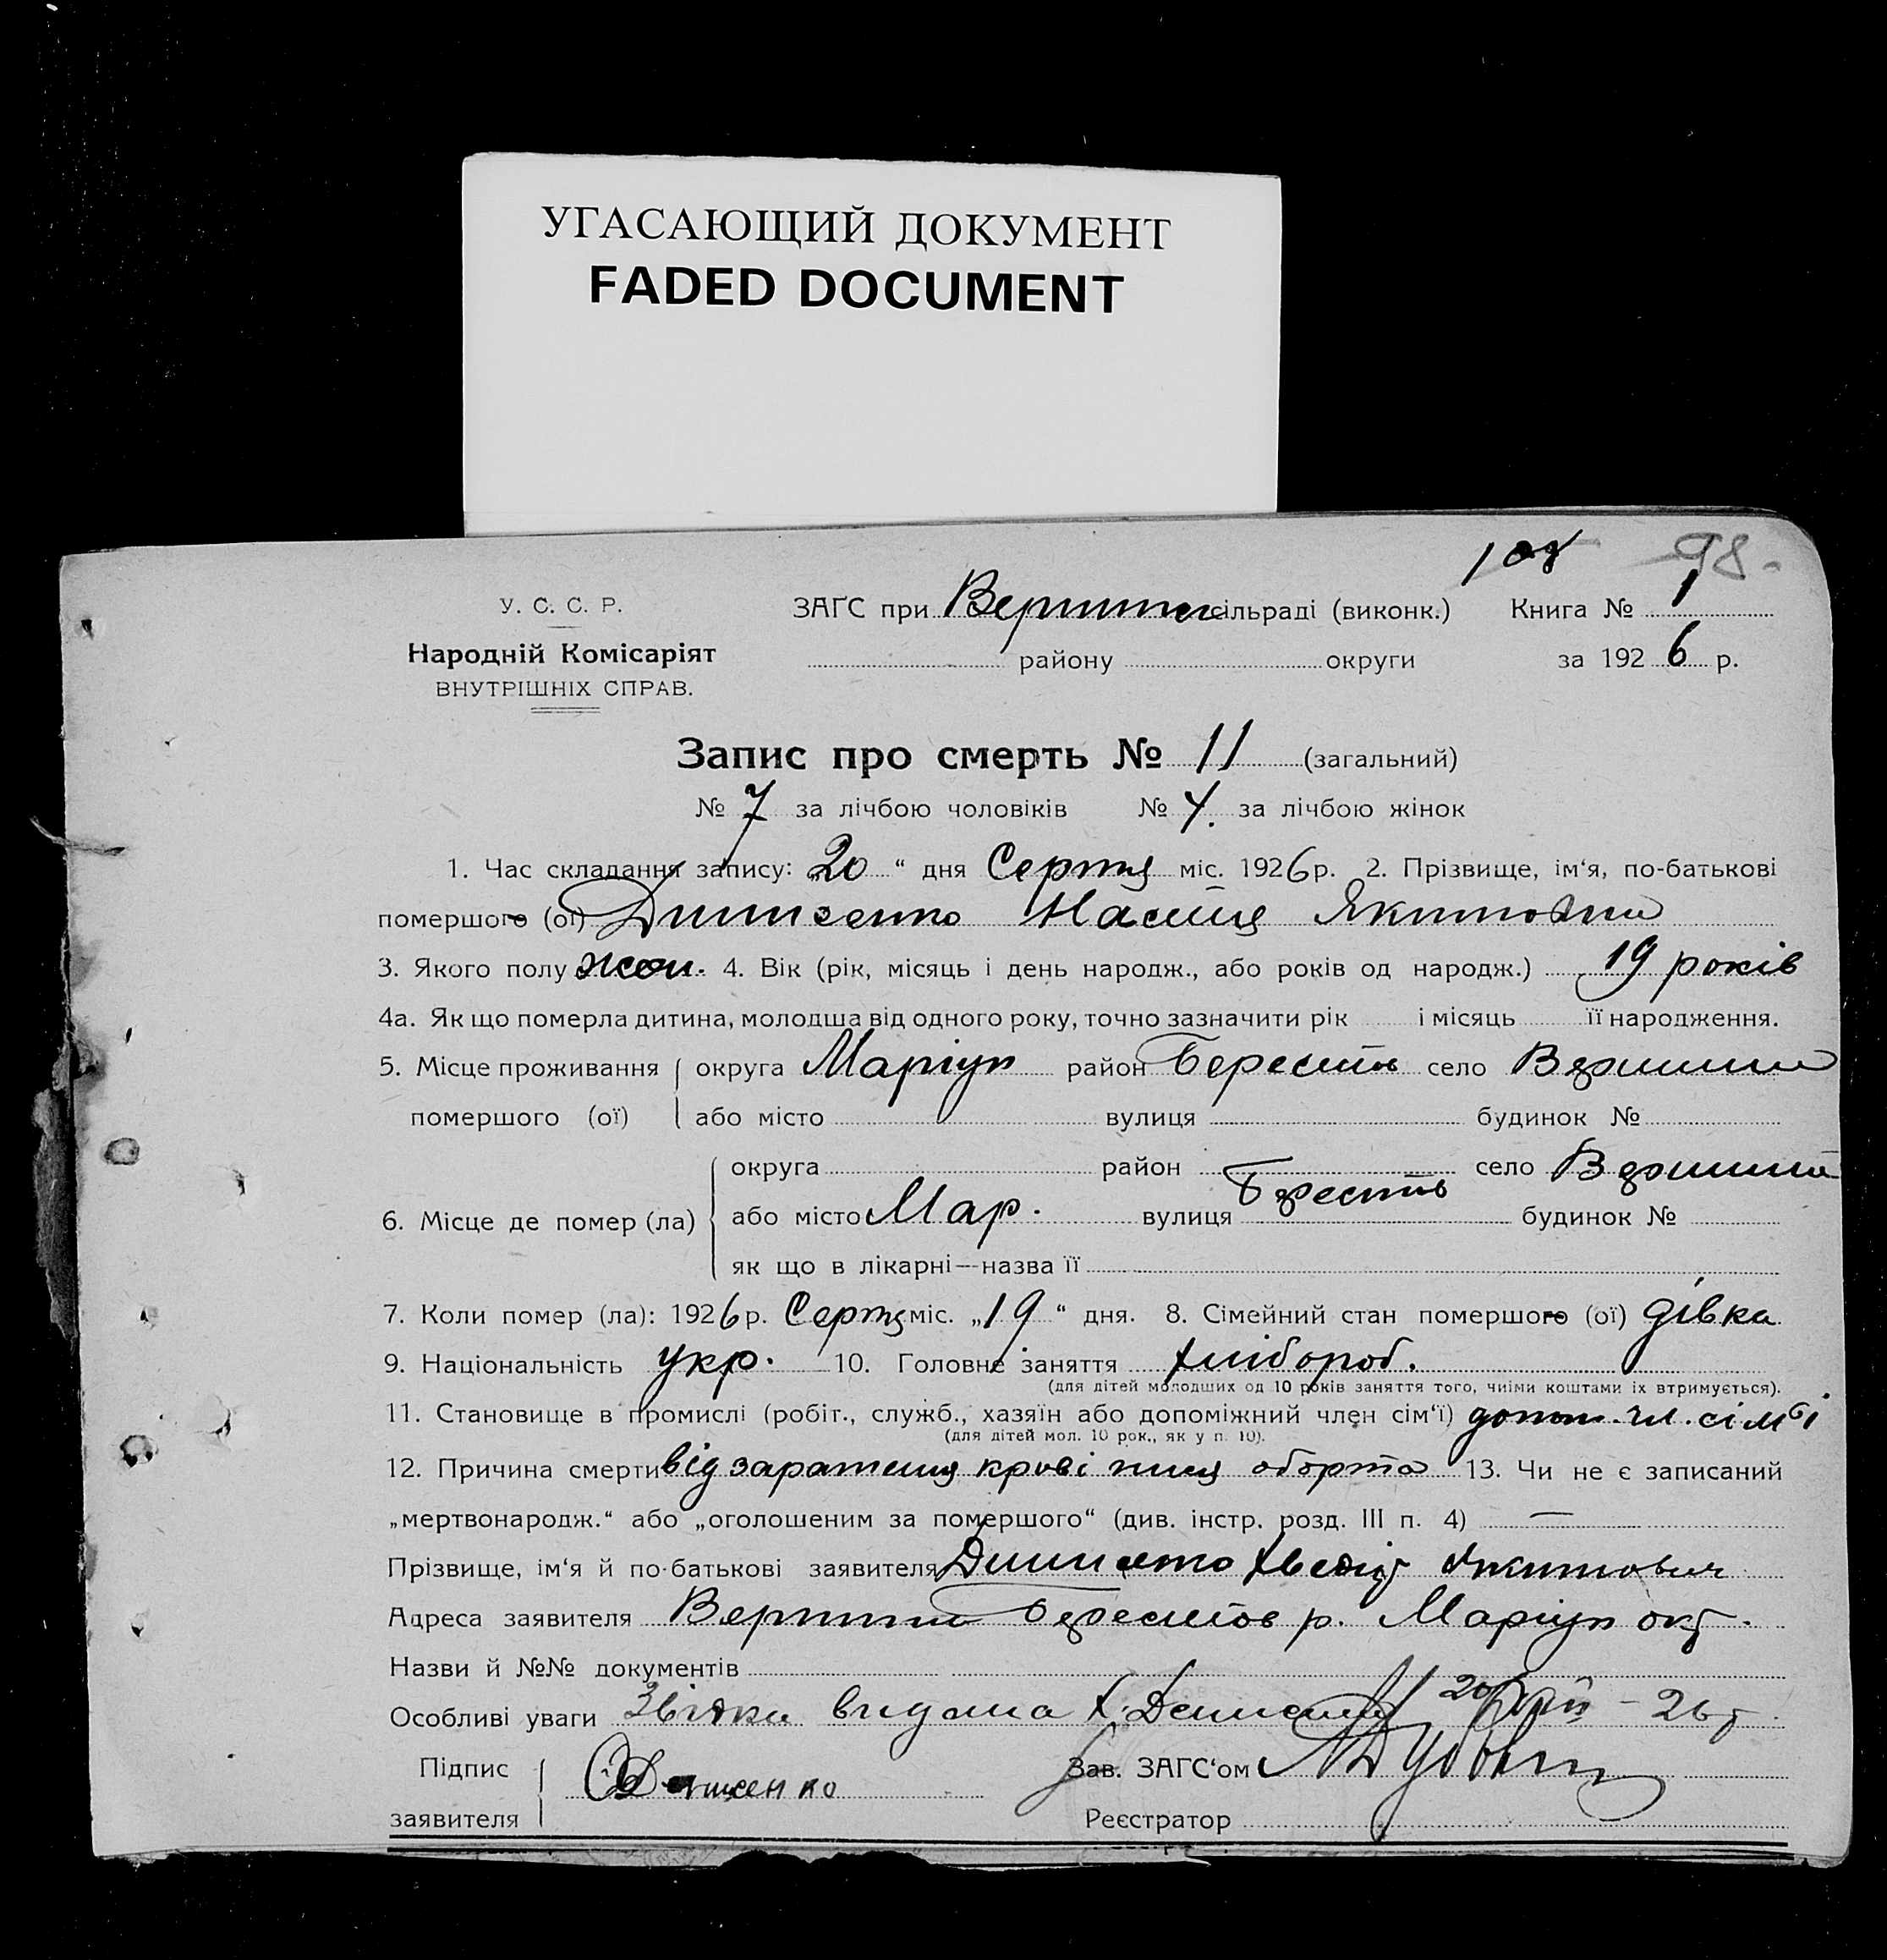 УГАСАЮЩИЙ ДОКУМЕНТ
FADED DOCUMENT
98.
У. С. С. Р.
ЗАГС при сільраді (виконк.) Книга № 1
Народній Комісаріят
району округи за 1926 р.
ВНУТРІШНІХ СПРАВ.
Запис про смерть № 11 (загальний)
№ 7 за лічбою чоловіків № 4. за лічбою жінок
1. Час складання запису: „20“ дня Серпня міс. 1926 р. 2. Прізвище, ім‘я, по-батькові
помершого (ої) Якимовна
3. Якого полу жен. 4. Вік (рік, місяць і день народж., або років од народж.) 19 років
4а. Як що померла дитина, молодша від одного року, точно зазначити рік і місяць її народження.
5. Місце проживання округа Маріуп район Берестов село
помершого (ої) або місто вулиця будинок №
округа район село
6. Місце де помер (ла) або місто Мар. вулиця Берестов будинок №
як що в лікарні—назва її
7. Коли помер (ла): 1926 р. Серпня міс. „19“ дня. 8. Сімейний стан помершого (ої) дівка
9. Національність укр. 10. Головне заняття хлібороб.
(для дітей молодших од 10 років заняття того, чиїми коштами їх втримується).
11. Становище в промислі (робіт., служб., хазяїн або допоміжний член сім‘ї) допом. чл. сім‘і
(для дітей мол. 10 рок., як у п. 10).
12. Причина смерти від зараження крові після аборта 13. Чи не є записаний
„мертвонародж.“ або „оголошеним за помершого“ (див. інстр. розд. III п. 4) —
Прізвище, ім‘я й по-батькові заявителя Якимович
Адреса заявителя Берестов р. Маріуп окр.
Назви й №№ документів
Особливі уваги видана 26 р.
Підпис Зав. ЗАГС‘ом
заявителя Реєстратор